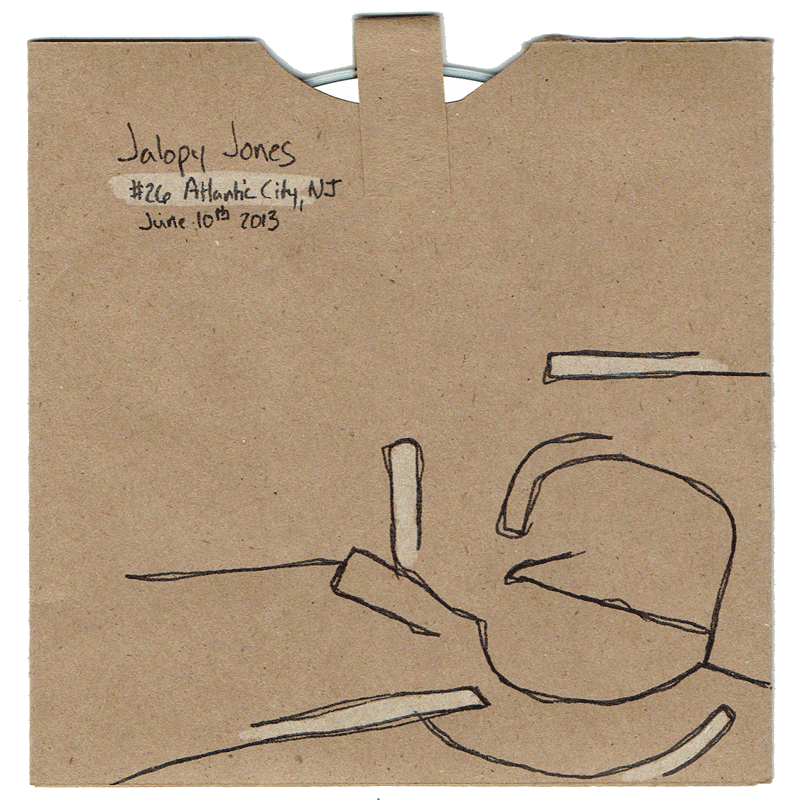 Jalopy Jones
#26 Atlantic City, NJ
June 10th 2013